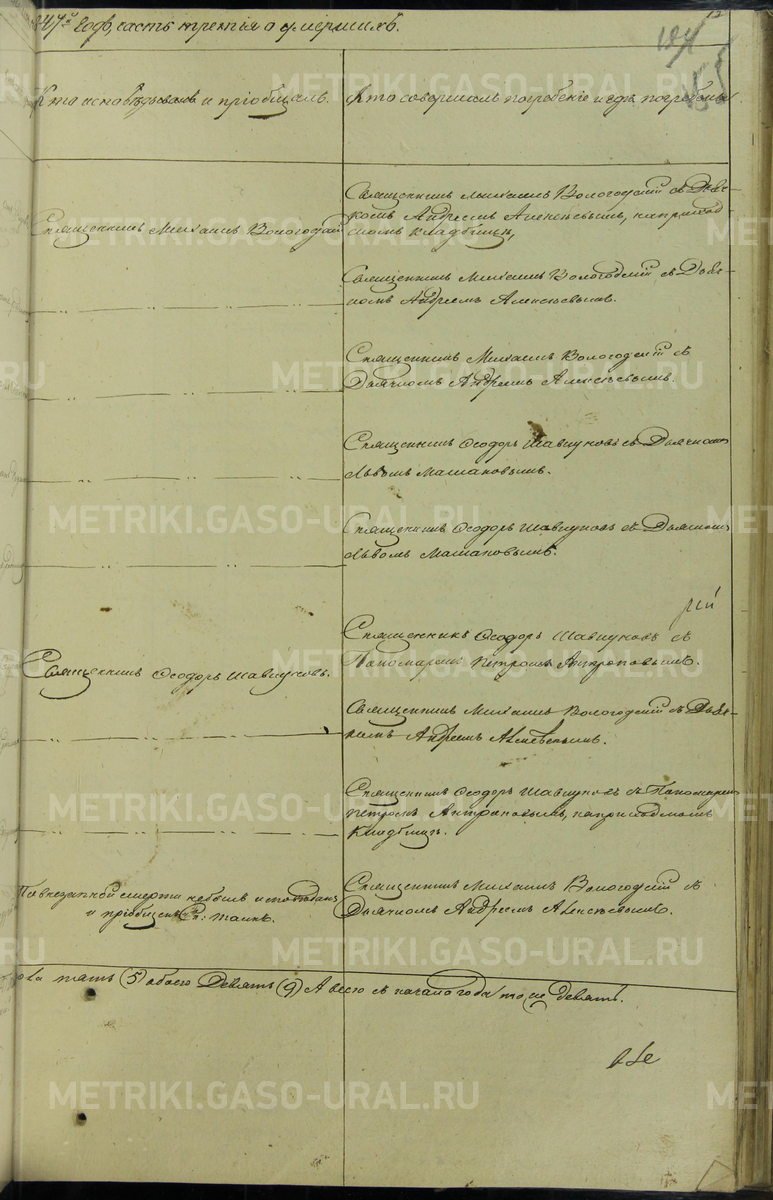 847го Года, часть третія о умершихъ.
Кто исповѣдывалъ и пріобщалъ.
Кто совершалъ погребеніе и гдѣ погребены.
Священникъ Михаилъ Вологодскій
Священникъ Михаилъ Вологодскій съ Дьяч-
комъ Андреемъ Алексѣевымъ, на приход-
скомъ кладбищѣ,
Священникъ Михаилъ Вологодскій, съ Дьяч-
комъ Андреемъ Алексѣевымъ.
Священникъ Михаилъ Вологодскій съ
Дьячкомъ Андреемъ Алексѣевымъ.
Священникъ Ѳеодоръ Шавкуновъ съ Дьячкомъ
Львомъ Машановымъ.
Священникъ Ѳеодоръ Шавкуновъ съ Дьячкомъ
Львомъ Машановымъ.
Священникъ Ѳеодоръ Шавкуновъ.
Священникъ Ѳеодоръ Шавкуновъ съ
Пономаремъ Петромъ Антроповымъ.
Священникъ Михаилъ Вологодскій съ Дьяч-
комъ Андреемъ Алексѣевымъ.
Священникъ Ѳеодоръ Шавкуновъ съ Пономаремъ
Петромъ Антроповымъ, на приходскомъ
Кладбищѣ.
По внезапной смерти не былъ исповѣданъ
и пріобщенъ Св: Таинъ.
Священникъ Михаилъ Вологодскій съ
Дьячкомъ Андреемъ Алексѣевымъ.
пять (5) обоего Девять (9) А всего съ начала года то же девять.
METRIKI.GASO-URAL.RU